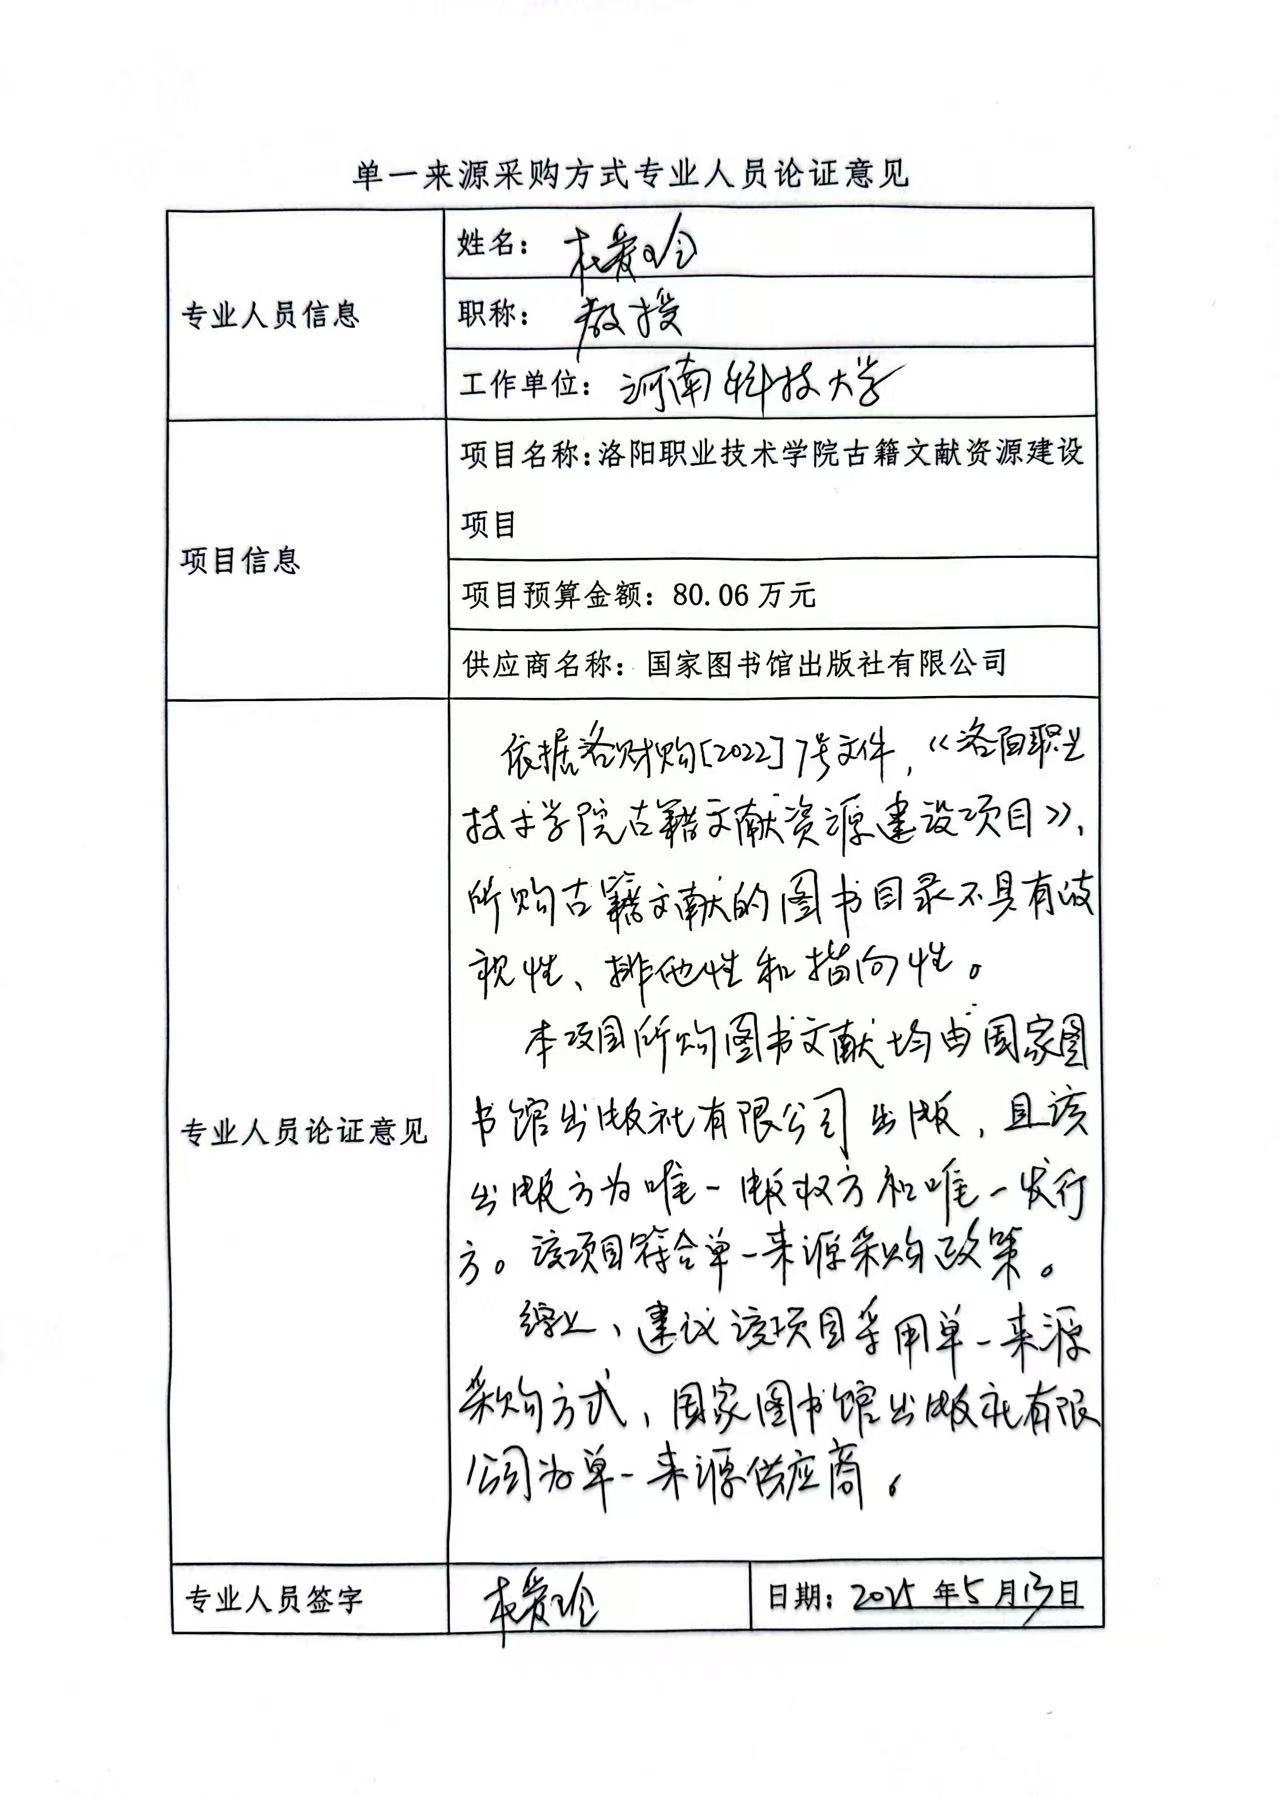 单一来源采购方式专业人员论证意见
专业人员信息
姓名：爱玲
职称：教授
工作单位：河南科技大学
项目信息
项目名称：洛阳职业技术学院古籍文献资源建设
项目
项目预算金额：80.06万元
供应商名称：国家图书馆出版社有限公司
专业人员论证意见
依据洛财购[2022]7号文件，《洛阳职业
技术学院古籍文献资源建设项目》，
所购古籍文献的图书目录不具有歧
视性、排他性和指向性。
本项目所购图书文献均由国家图
书馆出版社有限公司出版，且该
出版方为唯一版权方和唯一发行
方。该项目符合单一来源采购政策。
综上，建议该项目采用单一来源
采购方式，国家图书馆出版社有限
公司为单一来源供应商。
专业人员签字
爱玲
日期：2025年5月13日